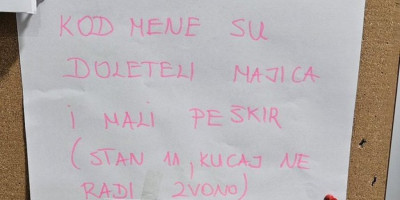 KOD MENE SU
DOLETELI MAJICA
i MALI PEŠKIR
(STAN 11, KUCAJ NE
RADI ZVONO)